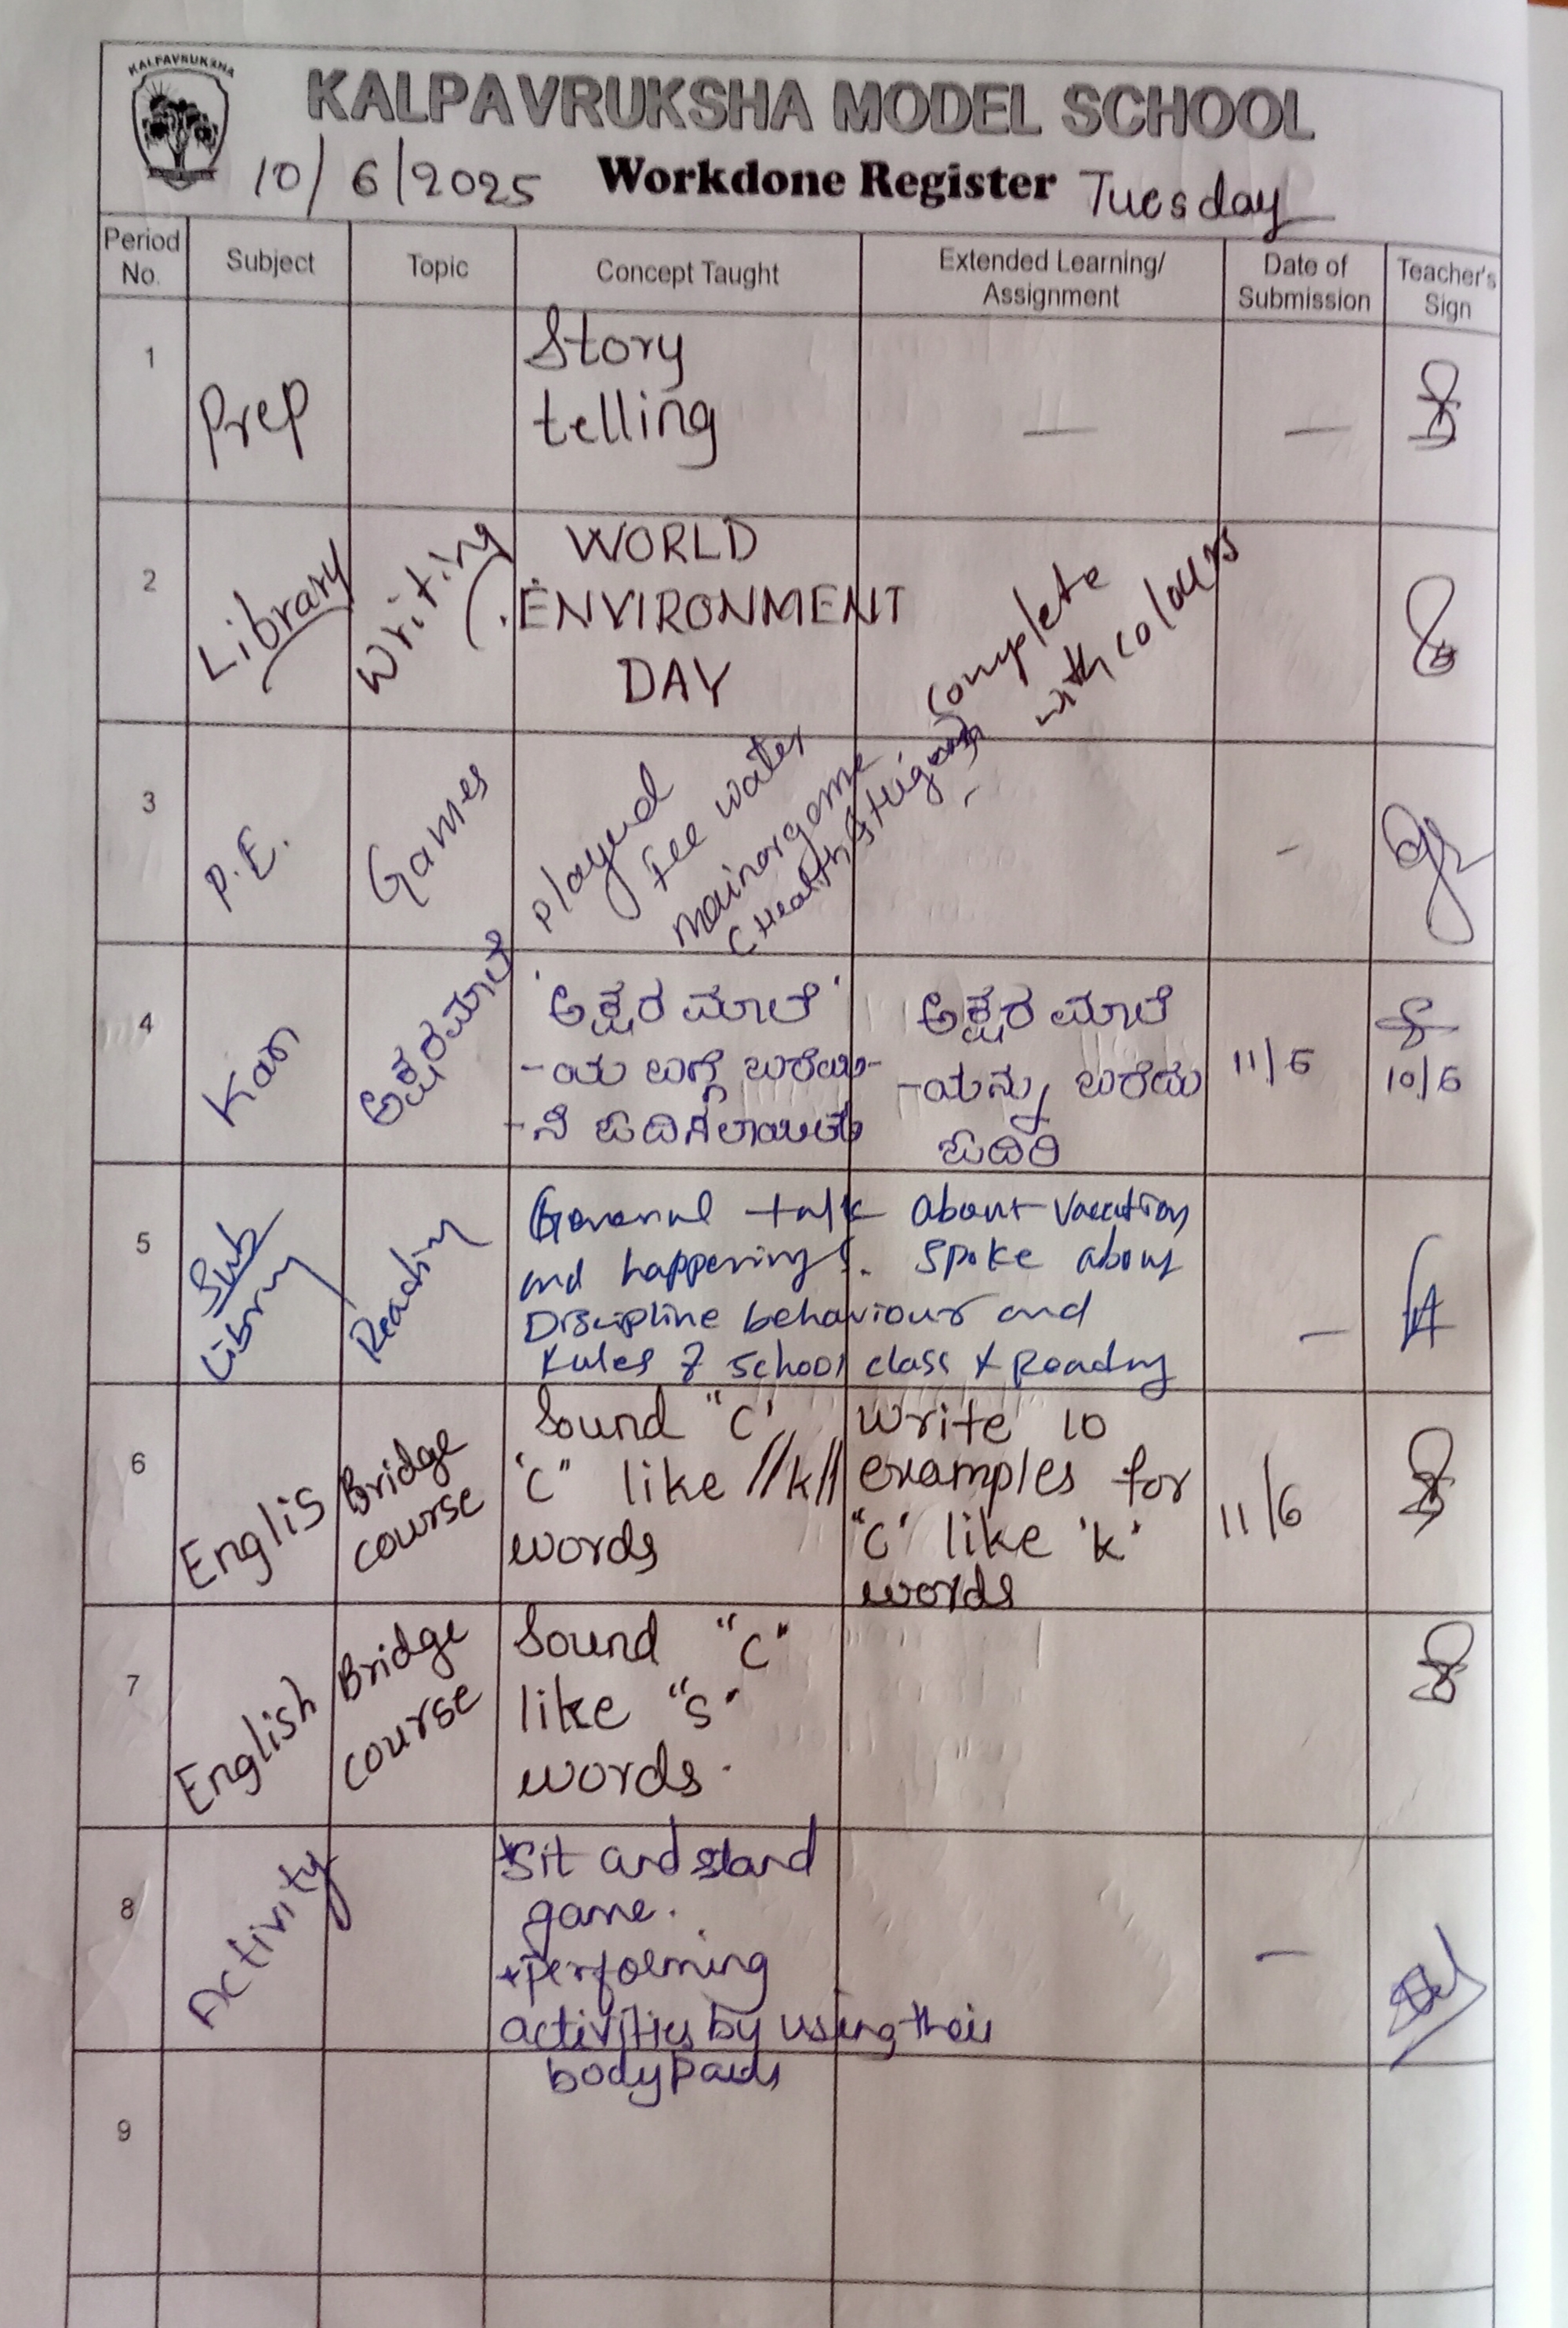 KALPAVRUKSHA
KALPAVRUKSHA MODEL SCHOOL
10/6/2025 Workdone Register Tuesday
Period No. Subject Topic Concept Taught Extended Learning/ Assignment Date of Submission Teacher's Sign
1 Prep
Story
telling
— —
2 Library Writing
WORLD
ENVIRONMENT
DAY
complete
with colours
3 P.E. Games
played
water
game
-
4 Kan ಅಕ್ಷರಮಾಲೆ
'ಅಕ್ಷರ ಮಾಲೆ'
-ಯ ಬಗ್ಗೆ ಬರೆಯಿ-
-ಸಿ ಓದಿಸಲಾಯಿತು
ಅಕ್ಷರ ಮಾಲೆ
-ಯನ್ನು ಬರೆದು
ಓದಿರಿ
11/6
10/6
5 Sub Library Reading
General talk about vacation
and happenings. Spoke about
Discipline behaviour and
Rules of school class & Reading
—
6 Englis Bridge course
Sound "C'
"C" like //k//
words
write 10
examples for
"C' like 'k'
words
11/6
7 English Bridge course
Sound "C"
like "s"
words.
8 Activity
*Sit and stand
game.
*Performing
activities by using their
body parts
—
9